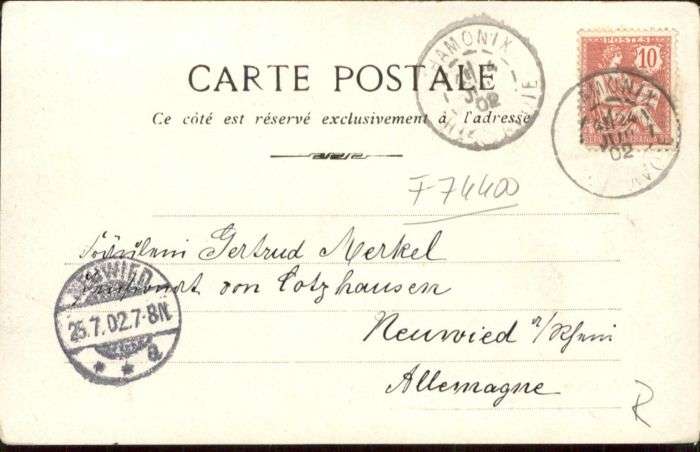 CHAMONIX
POSTES
10
CARTE POSTALE
02
Ce côté est réservé exclusivement à l'adresse
24
JUIL
02
F 74400
Fräulein Gertrud Merkel
von Lotzhausen
NEUWIED
25.7.02.7-8N.
* * a
Neuwied a/Rhein
Allemagne
R